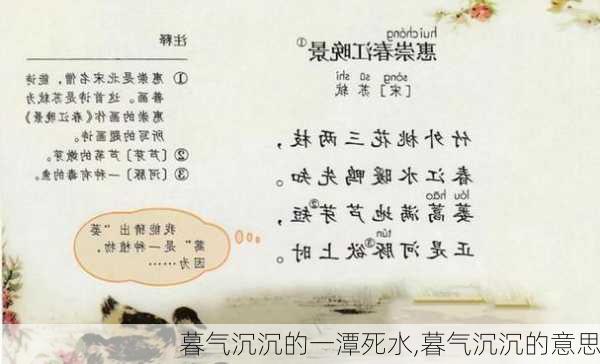 huì chóng
惠崇春江晚景①
sòng sū shì
［宋］苏轼
竹外桃花三两枝，
春江水暖鸭先知。
lóu hāo
蒌蒿满地芦芽②短，
tún
正是河豚③欲上时。
注释
① 惠崇是北宋名僧，能诗
善画。这首诗是苏轼为
惠崇的画作《春江晚景》
所写的题画诗。
②〔芦芽〕芦苇的嫩芽。
③〔河豚〕一种有毒的鱼。
我能猜出“蒌
蒿”是一种植物，
因为……
暮气沉沉的一潭死水,暮气沉沉的意思